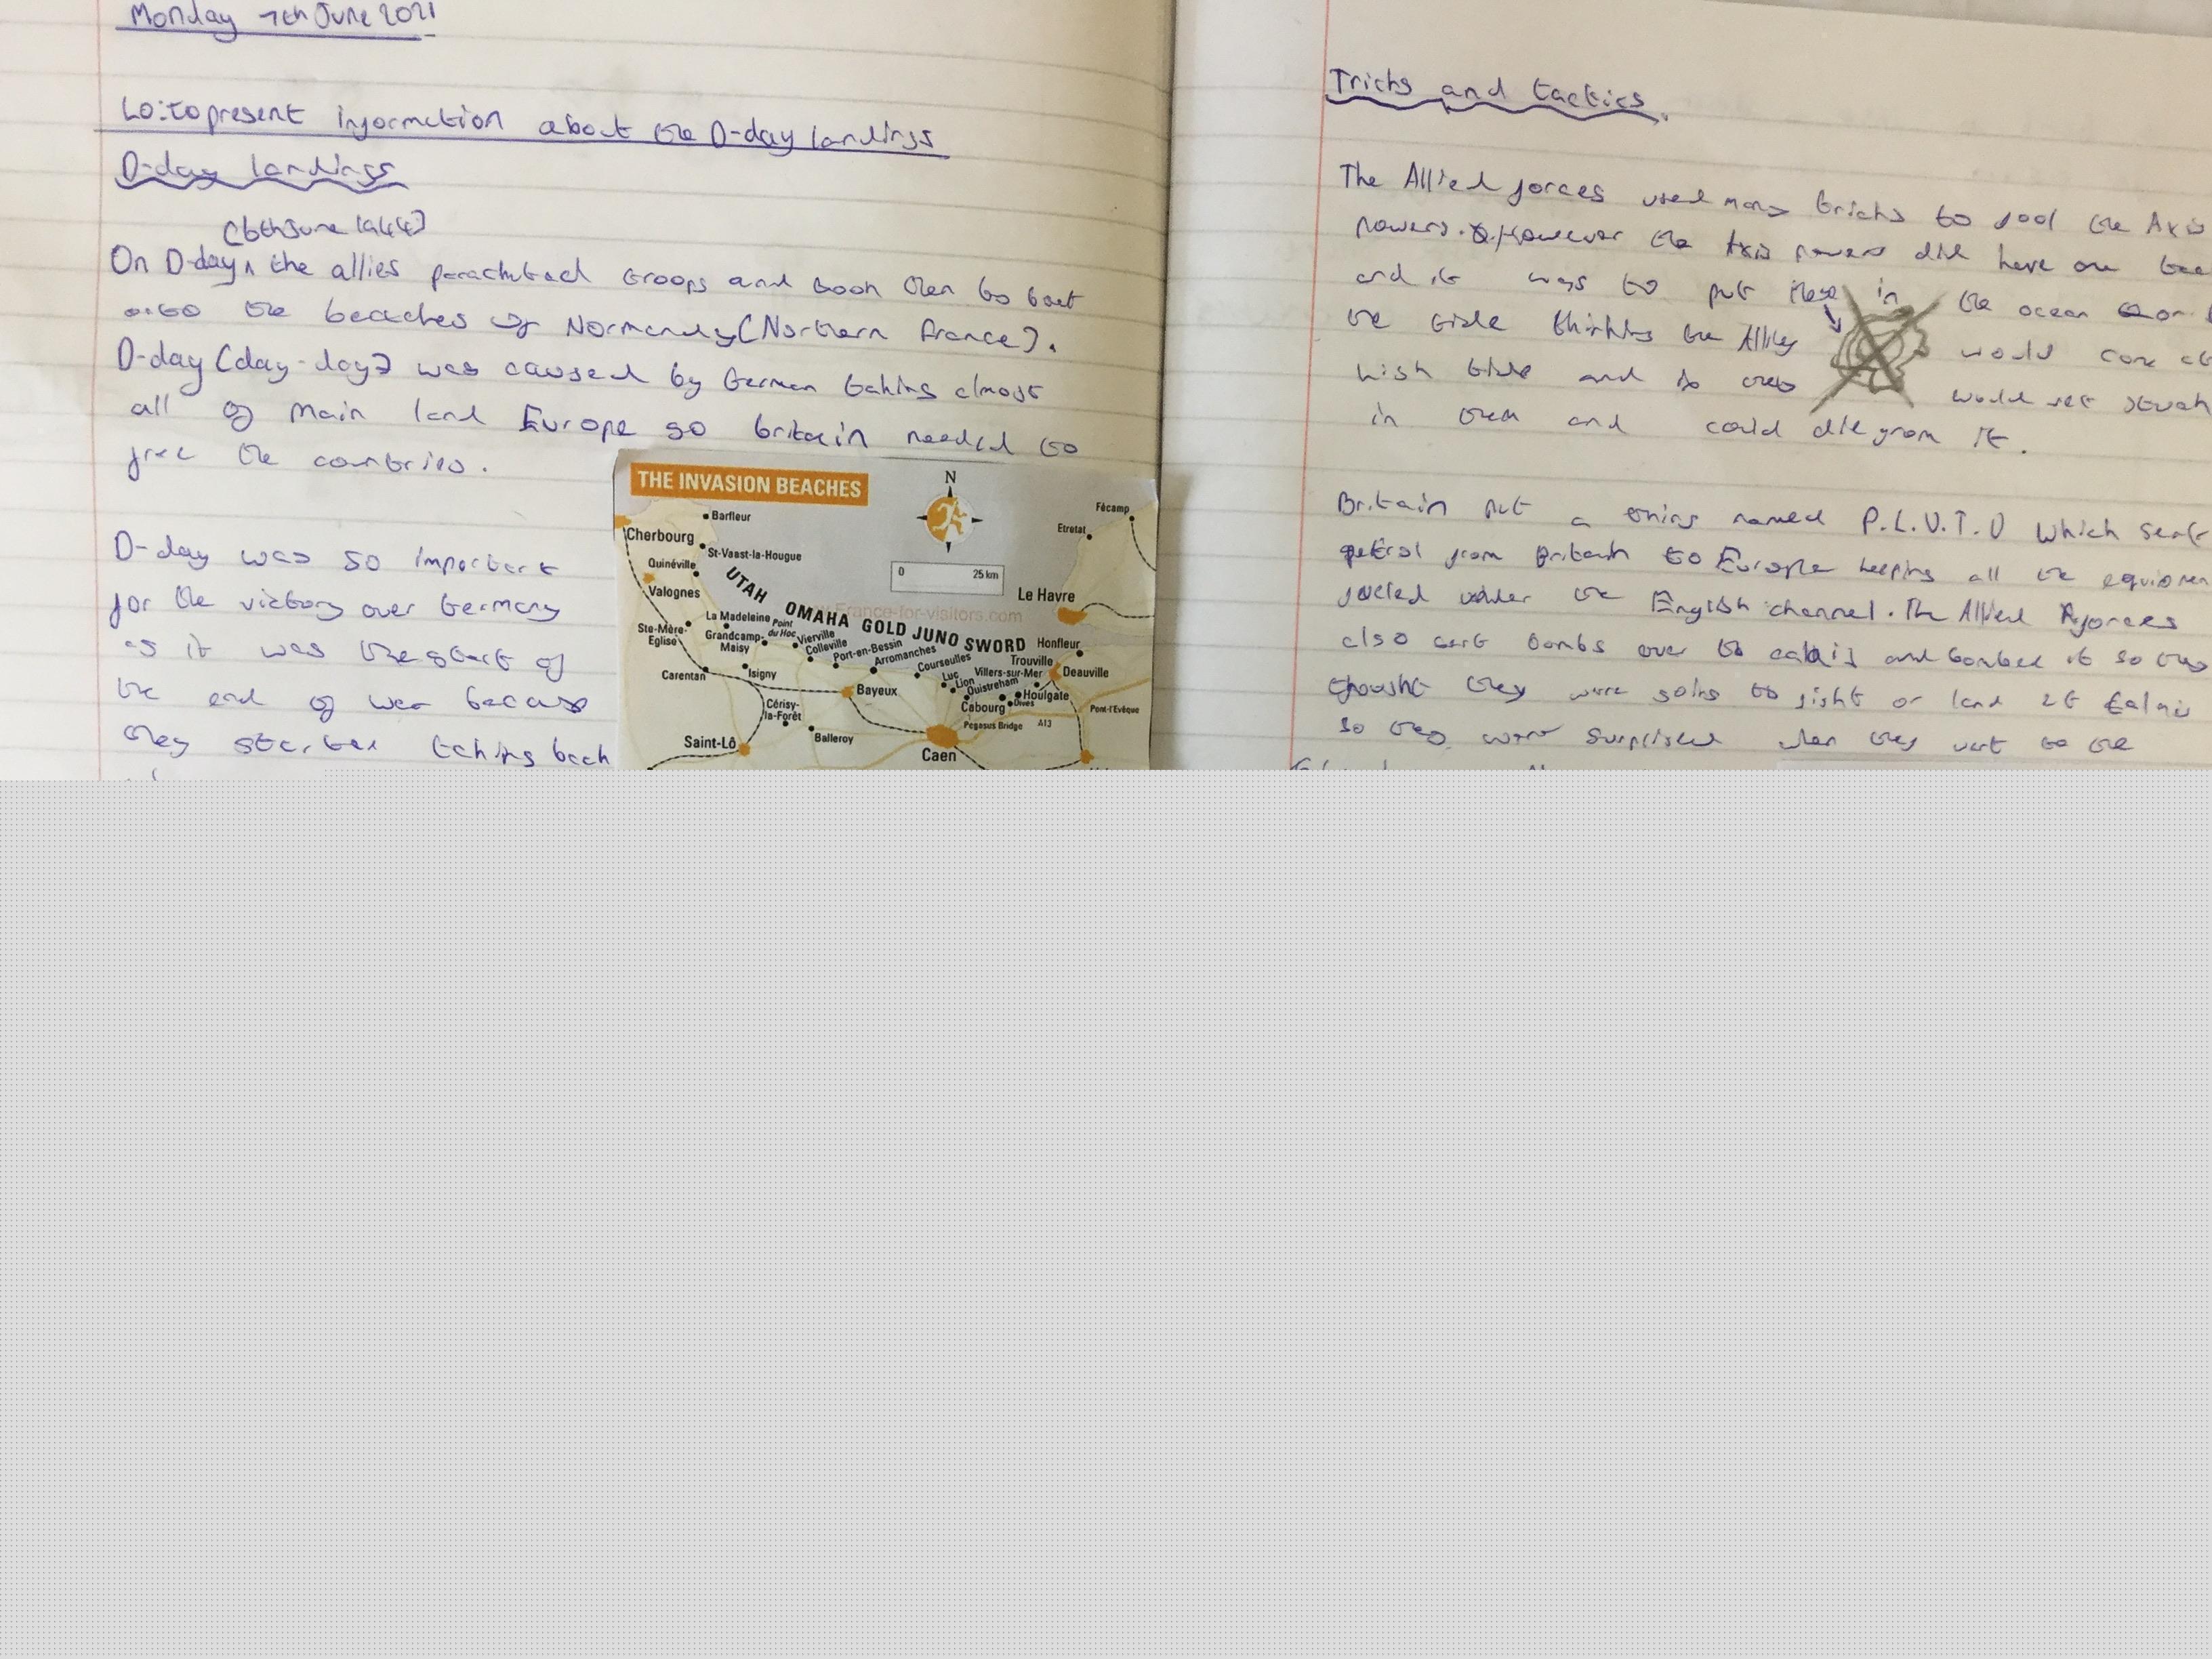 Monday 7th June 2021
Lo: to present information about the D-day landings
D-day landings
(6th June 1944)
On D-day, the allies parachuted troops and took them to boat
onto the beaches of Normandy (Northern france).
D-day (day-day) was caused by German taking almost
all of main land Europe so britain needed to
free the countries.
D-day was so important
for the victory over Germany
as it was the start of
the end of war because
they started taking back
THE INVASION BEACHES
N
Barfleur
Fécamp
Cherbourg
Etretat
St-Vaast-la-Hougue
Quinéville
0 25 km
UTAH
Valognes
Le Havre
www.France-for-visitors.com
OMAHA GOLD JUNO SWORD
La Madeleine
Point du Hoc
Ste-Mère-Eglise
Grandcamp-Maisy
Vierville
Colleville
Port-en-Bessin
Arromanches
Courseulles
Honfleur
Trouville
Deauville
Villers-sur-Mer
Carentan
Isigny
Luc
Lion
Ouistreham
Houlgate
Bayeux
Cabourg
Dives
Pont-l'Evêque
Cérisy-la-Forêt
Pegasus Bridge
A13
Balleroy
Saint-Lô
Caen
Tricks and tactics.
The Allied forces used many tricks to fool the Axis
powers. However the Axis powers did have one
and it was to put these in the ocean or
the tide thinking the Allies would come at
high tide and so they would get stuck
in them and could die from it.
Britain put a thing named P.L.U.T.O which sent
petrol from Britain to Europe keeping all the
fueled under the English channel. The Allied forces
also sent bombs over to calais and bombed it so they
thought they were going to fight or land at Calais
so they were surprised when they went to the